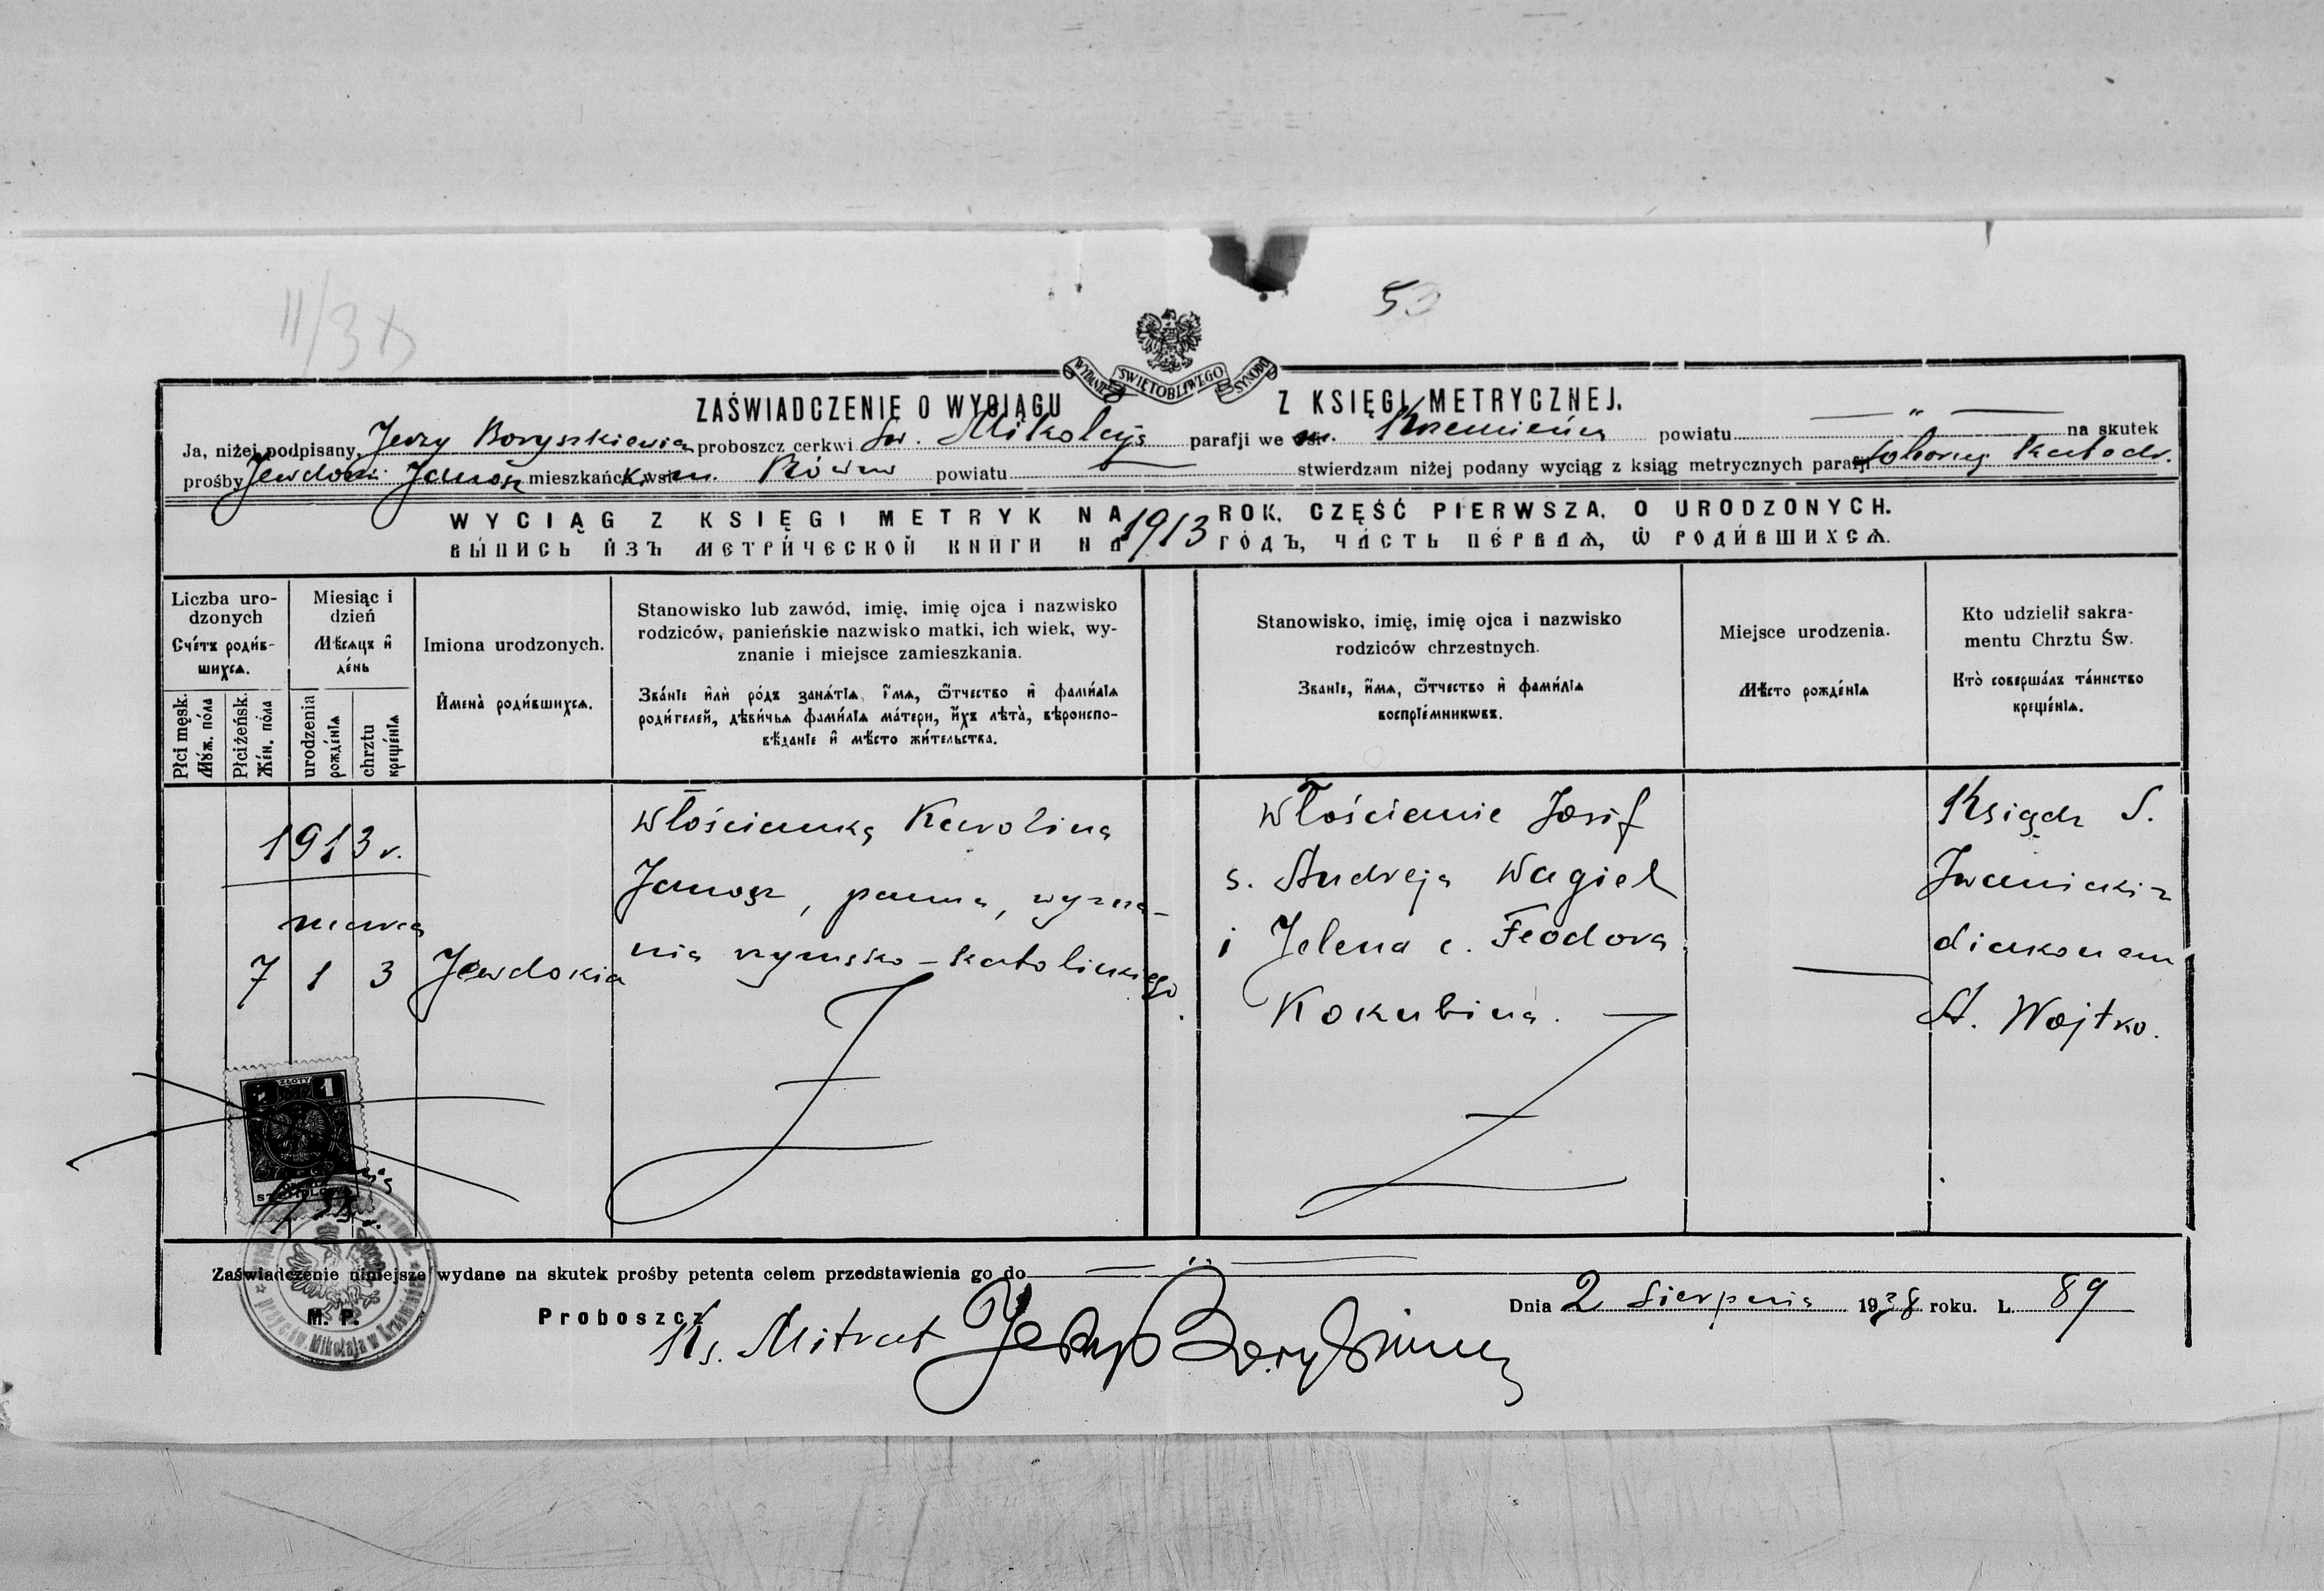 53
WYDANIE ŚWIĘTOBLIWEGO SYNODU
ZAŚWIADCZENIE O WYCIĄGU Z KSIĘGI METRYCZNEJ.
Ja, niżej podpisany, Jerzy Boryszkiewicz proboszcz cerkwi św. Mikołaja parafji we m. Krzemieńcu powiatu — " — na skutek
prośby Jewdokii Janosz mieszkańc k. wsi m. Równe powiatu — stwierdzam niżej podany wyciąg z ksiąg metrycznych parafji Soboru Katedr.
WYCIĄG Z KSIĘGI METRYK NA 1913 ROK, CZĘŚĆ PIERWSZA, O URODZONYCH.
ВЫ́ПИСЬ И҆ЗЪ МЕТРИ́ЧЕСКОЙ КНИ́ГИ НА 1913 ГО́ДЪ, ЧА́СТЬ ПЕ́РВАѦ, Ѡ҆ РОДИ́ВШИХСѦ.
Liczba uro-
dzonych
Сче́тъ роди́в-
шихсѧ.
Płci męsk.
Мꙋ́ж. по́ла
Płci żeńsk.
Же́н. по́ла
Miesiąc i
dzień
Мѣ́сѧцъ и҆
де́нь
urodzenia
рожде́нїѧ
chrztu
креще́нїѧ
Imiona urodzonych.
И҆мена̀ роди́вшихсѧ.
Stanowisko lub zawód, imię, imię ojca i nazwisko
rodziców, panieńskie nazwisko matki, ich wiek, wy-
znanie i miejsce zamieszkania.
Зва́нїе и҆лѝ ро́дъ занѧ́тїѧ, и҆́мѧ, ѻ҆́тчество и҆ фами́лїѧ
роди́телей, дѣви́чьѧ фами́лїѧ ма́тери, и҆́хъ лѣта̀, вѣроиспо-
вѣ́данїе и҆ мѣ́сто жи́тельства.
Stanowisko, imię, imię ojca i nazwisko
rodziców chrzestnych.
Зва́нїе, и҆́мѧ, ѻ҆́тчество и҆ фами́лїѧ
воспрїе́мникѡвъ.
Miejsce urodzenia.
Мѣ́сто рожде́нїѧ
Kto udzielił sakra-
mentu Chrztu Św.
Кто̀ соверша́лъ та́инство
креще́нїѧ.
1913 r.
marca
7 1 3 Jewdokia
Włościanka Karolina
Janosz, panna, wyzna-
nia rzymsko-katolickiego.
Włościanie Josif
s. Andreja Wagiel
i Jelena c. Feodora
Kokubina. —
Ksiądz S.
Iwanicki z
diakonem
A. Wojtko.
ZŁOTY 1
Zaświadczenie niniejsze wydane na skutek prośby petenta celem przedstawienia go do — " —
M. P.
Proboszcz Ks. Mitrat Jerzy Boryszkiewicz
Dnia 2 sierpnia 1938 roku. L. 89